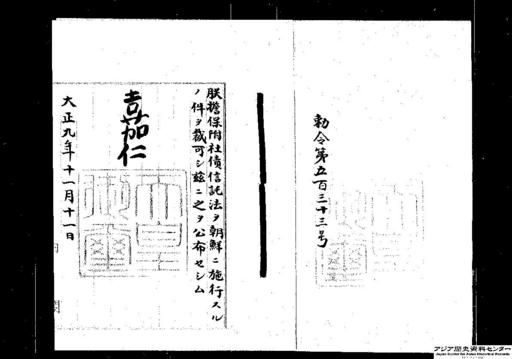 勅令第五百三十三号
朕擔保附社債信託法ヲ朝鮮ニ施行スル
ノ件ヲ裁可シ茲ニ之ヲ公布セシム
嘉仁
天皇
御璽
大正九年十一月十一日
アジア歴史資料センター
Japan Center for Asian Historical Records